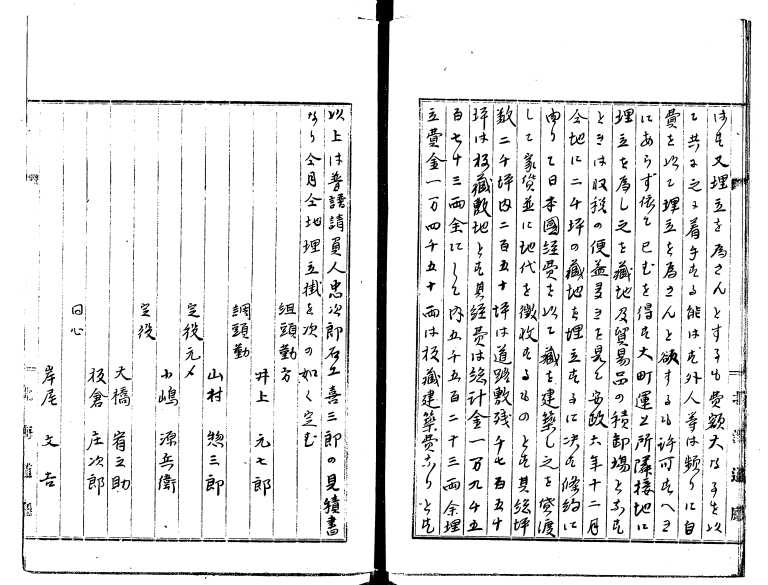 は又埋立を為さんとするも費額大なるを以
て共に之に着手する能はず外人等は頻りに自
費を以て埋立を為さんと欲するも許可すへき
にあらず依て已むを得ず大町運上所隣接地に
埋立を為し之を蔵地及貿易品の積卸場となす
ときは収税の便益多きを見て安政六年十二月
仝地に二千坪の蔵地を埋立することに決し條約に
由りて日本國経費を以て蔵を建築し之を貸渡
して家賃並に地代を徴收するものとし其総坪
数二千坪内二百五十坪は道路敷残千七百五十
坪は板蔵敷地とし其経費は総計金一万九千五
百七十三両余にして内五千五百二十三両余埋
立費金一万四千五十両は板蔵建築費なりとす
以上は普請請負人忠次郎石工喜三郎の見積書
なり仝月仝地埋立掛を次の如く定む
組頭勤方
井上元七郎
調頭勤
山村惣三郎
定役元〆
小嶋源兵衛
定役
大橋宥之助
板倉庄次郎
同心
岸尾文吉
北海道廳